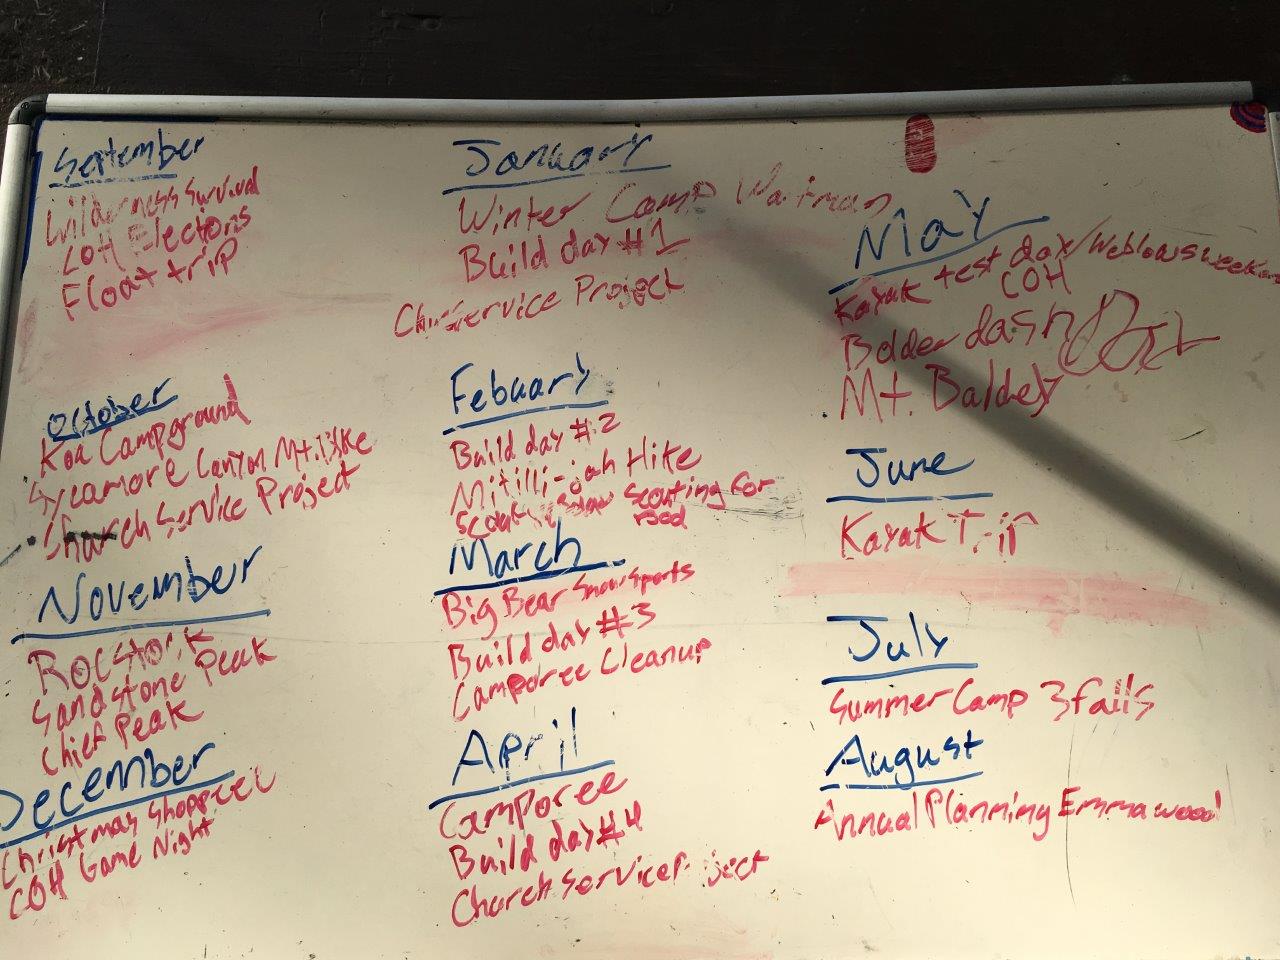 September
Wilderness Survival
COH Elections
Float trip
October
Koa Campground
Sycamore Canyon Mt. Bike
Church Service Project
November
Rocstork
Sandstone Peak
Chief Peak
December
Christmas
COH Game Night
January
Winter Camp
Build day #1
Service Project
Febuary
Build day #2
Mitilli-jah Hike
Scouting for
food
March
Big Bear Snowsports
Build day #3
Camporee Cleanup
April
Camporee
Build day #4
Church Service Project
May
Kayak test day/Weblows
COH
Bolder dash
Mt. Baldey
June
Kayak Trip
July
Summer Camp 3 falls
August
Annual Planning Emma wood